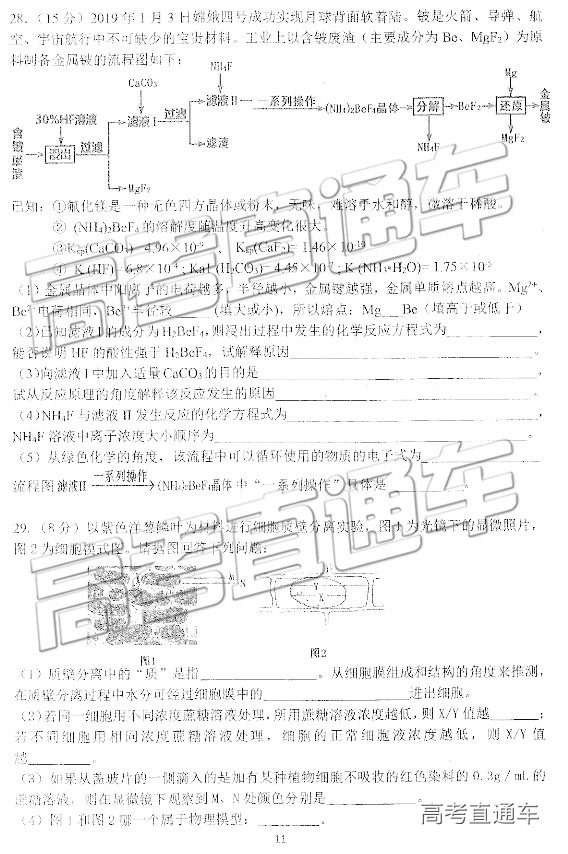 28.（15分）2019年1月3日嫦娥四号成功实现月球背面软着陆。铍是火箭、导弹、航
空、宇宙航行中不可缺少的宝贵材料。工业上以含铍废渣（主要成分为Be、MgF₂）为原
料制备金属铍的流程图如下：
NH₄F
CaCO₃
Mg
30%HF溶液
滤液Ⅱ 一系列操作 (NH₄)₂BeF₄晶体 分解 BeF₂ 还原 金属铍
含铍废渣 浸出 过滤 滤液Ⅰ 过滤
滤渣
NH₄F
MgF₂
MgF₂
已知：①氟化镁是一种无色四方晶体或粉末，无味，难溶于水和醇，微溶于稀酸。
②(NH₄)₂BeF₄的溶解度随温度升高变化很大。
③Ksp(CaCO₃)=4.96×10⁻⁹ ，Ksp(CaF₂)= 1.46×10⁻¹⁰
④ K (HF)= 6.8×10⁻⁴ ; Ka1 (H₂CO₃)= 4.45×10⁻⁷ ; K (NH₃·H₂O)= 1.75×10⁻⁵
(1) 金属晶体中阳离子的电荷越多，半径越小，金属键越强，金属单质熔点越高。Mg²⁺、
Be²⁺电荷相同，Be²⁺半径较____(填大或小)，所以熔点：Mg___Be（填高于或低于）
(2)已知滤液Ⅰ的成分为H₂BeF₄,则浸出过程中发生的化学反应方程式为____________,
能否说明 HF 的酸性强于 H₂BeF₄，试解释原因____________。
(3)向滤液Ⅰ中加入适量CaCO₃的目的是____________,
试从反应原理的角度解释该反应发生的原因____________。
(4)NH₄F与滤液Ⅱ发生反应的化学方程式为____________,
NH₄F 溶液中离子浓度大小顺序为____________。
(5) 从绿色化学的角度，该流程中可以循环使用的物质的电子式为____________,
流程图 滤液Ⅱ 一系列操作 (NH₄)₂BeF₄晶体 中“一系列操作”具体是________。
29.（8分）以紫色洋葱鳞叶为材料进行细胞质壁分离实验，图1为光镜下的显微照片，
图2为细胞模式图。请据图回答下列问题：
M
N
X
Y
图1
图2
(1) 质壁分离中的“质”是指____________。从细胞膜组成和结构的角度来推测，
在质壁分离过程中水分可经过细胞膜中的____________进出细胞。
(2)若同一细胞用不同浓度蔗糖溶液处理，所用蔗糖溶液浓度越低，则 X/Y 值越______；
若不同细胞用相同浓度蔗糖溶液处理，细胞的正常细胞液浓度越低，则 X/Y 值
越________。
(3) 如果从盖玻片的一侧滴入的是加有某种植物细胞不吸收的红色染料的 0.3g / mL 的
蔗糖溶液，则在显微镜下观察到 M、N 处颜色分别是____________。
(4) 图1和图2哪一个属于物理模型：________。
11
高考直通车
高考直通车
高考直通车
高考直通车